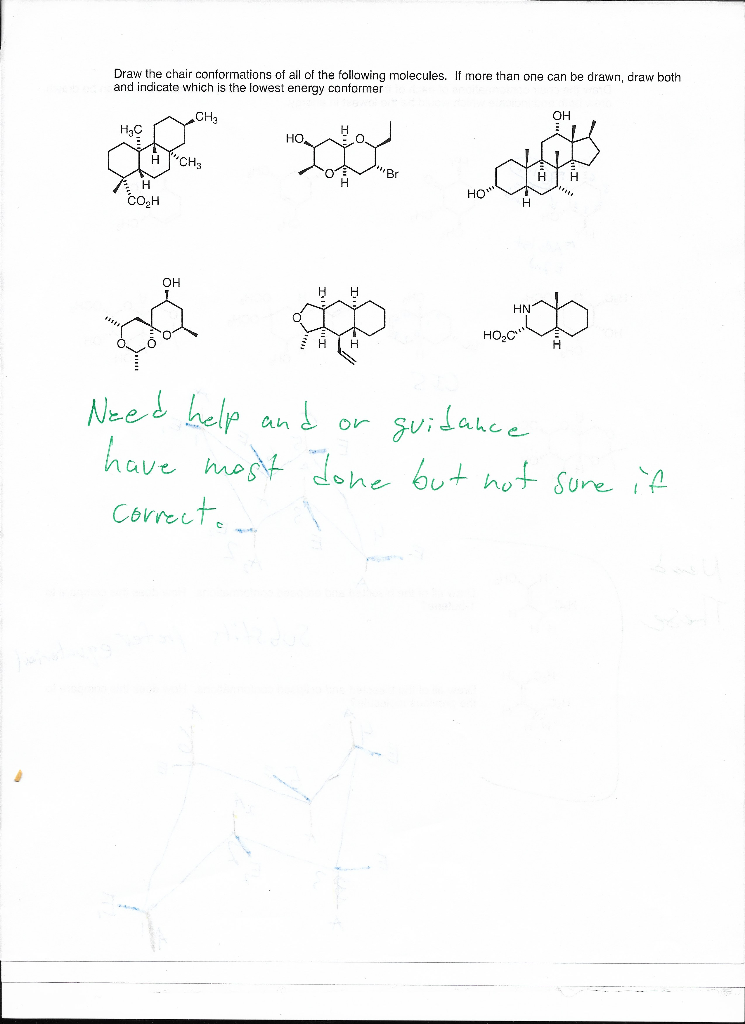 Draw the chair conformations of all of the following molecules. If more than one can be drawn, draw both
and indicate which is the lowest energy conformer
CH3
H3C
H
CH3
H
CO2H
HO
H
O
O
H
Br
OH
H
H
HO
H
OH
O
O
O
H
H
O
H
H
HN
HO2C
H
Need help and or guidance
have most done but not sure if
correct.